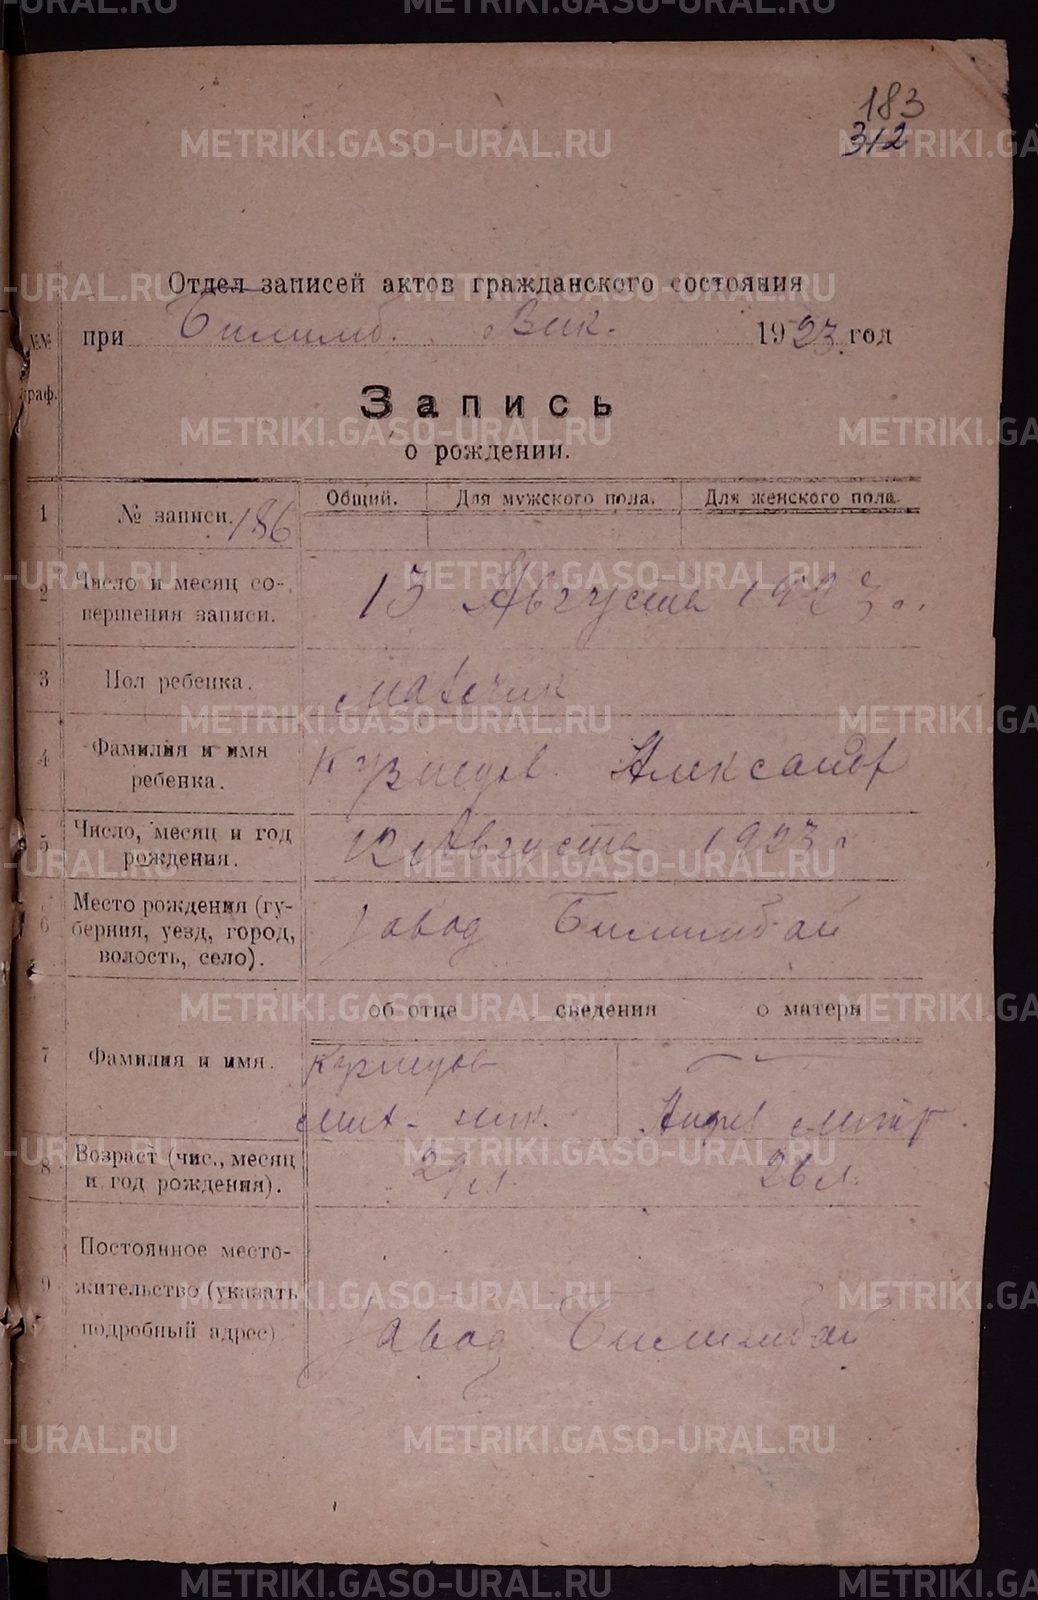 183
312
Отдел записей актов гражданского состояния
при Билимб. Вик. 1923 год
№№
граф.
Запись
о рождении.
Общий. Для мужского пола. Для женского пола.
1 № записи. 186
2 Число и месяц со-
вершения записи.
13 Августа 1923 г.
3 Пол ребенка.
мальчик
4 Фамилия и имя
ребенка.
Кузнецов Александр
5 Число, месяц и год
рождения.
12 Августа 1923 г
6 Место рождения (гу-
берния, уезд, город,
волость, село).
Завод Билимбай
об отце сведения о матери
7 Фамилия и имя.
Кузнецов
Мих. Ник.
8 Возраст (чис., месяц
и год рождения).
29 л. 26 л.
9 Постоянное место-
жительство (указать
подробный адрес)
Завод Билимбай
METRIKI.GASO-URAL.RU